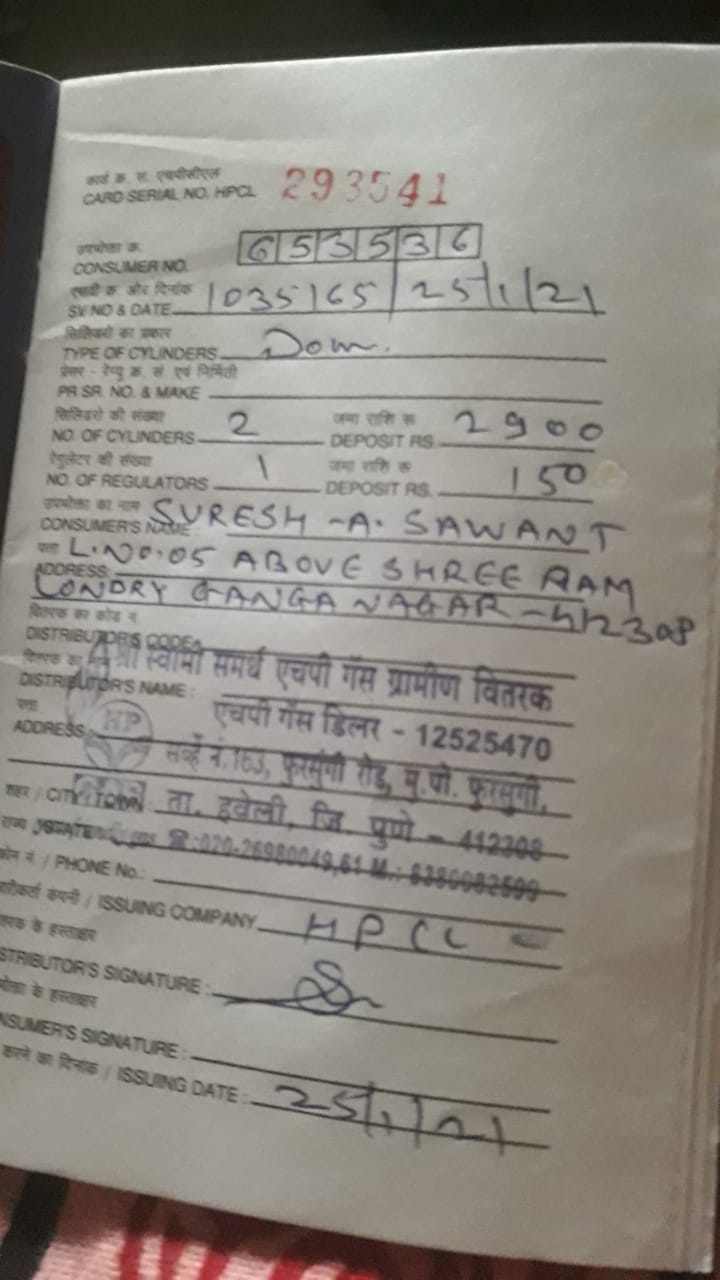 कार्ड क्र. सं. एचपीसीएल
CARD SERIAL NO. HPCL 293541
उपभोक्ता क्र.
CONSUMER NO. 653536
एसवी क्र. और दिनांक
SV NO & DATE 1035165/25/1/21
सिलिंडरों का प्रकार
TYPE OF CYLINDERS Dom.
प्रेसर - रेग्यु क्र. सं एवं निर्मिती
PR SR. NO. & MAKE
सिलिंडरो की संख्या जमा राशि रू
NO. OF CYLINDERS 2 DEPOSIT RS. 2900
रेगुलेटर की संख्या जमा राशि रू
NO. OF REGULATORS 1 DEPOSIT RS. 150
उपभोक्ता का नाम
CONSUMER'S NAME: SURESH -A. SAWANT
पत्ता
ADDRESS: L.NO.05 ABOVE SHREE RAM
LONDRY GANGA NAGAR-412308
वितरक का कोड नं.
DISTRIBUTOR'S CODE:
वितरक का नाम श्री स्वामी समर्थ एचपी गॅस ग्रामीण वितरक
DISTRIBUTOR'S NAME: एचपी गॅस डिलर - 12525470
पत्ता
ADDRESS HP सर्व्हे नं.163, फुरसुंगी रोड, मु.पो. फुरसुंगी,
शहर / CITY/TOWN: ता. हवेली, जि. पुणे - 412308
राज्य / STATE ☎:020-26980049,61 M.: 8380082599
फोन नं. / PHONE No.:
ISSUING COMPANY HPCL
के हस्ताक्षर
DISTRIBUTOR'S SIGNATURE:
के हस्ताक्षर
CONSUMER'S SIGNATURE:
करने का दिनांक / ISSUING DATE: 25/1/21